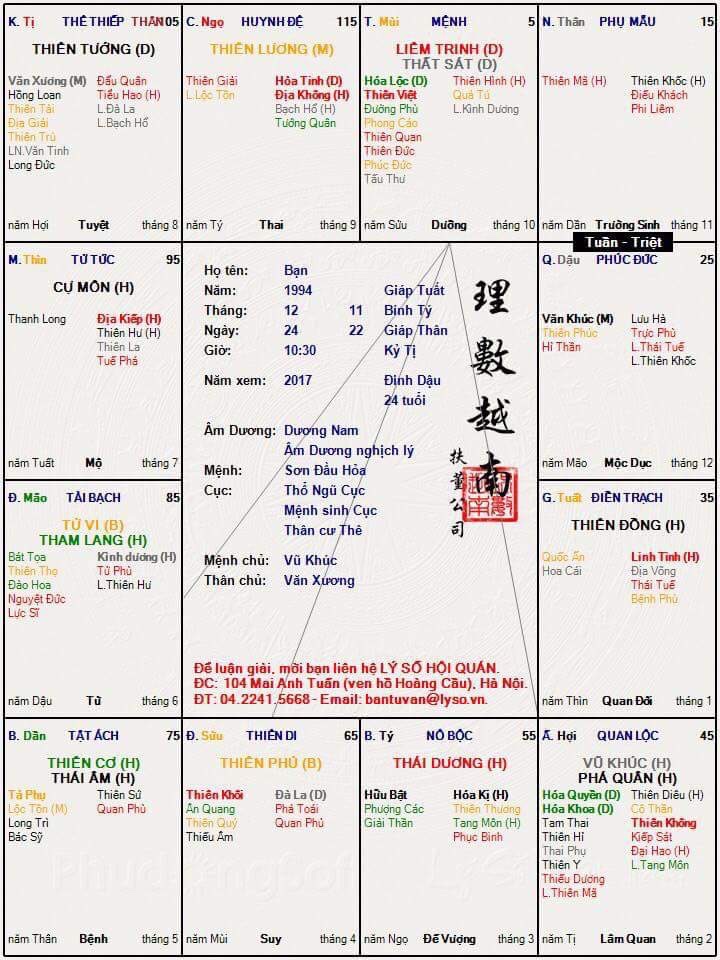 K. Tị THÊ THIẾP THÂN105
THIÊN TƯỚNG (D)
Văn Xương (M) Đẩu Quân
Hồng Loan Tiểu Hao (H)
Thiên Tài L.Đà La
Địa Giải L.Bạch Hổ
Thiên Trù
LN.Văn Tinh
Long Đức
năm Hợi Tuyệt tháng 8
C. Ngọ HUYNH ĐỆ 115
THIÊN LƯƠNG (M)
Thiên Giải Hỏa Tinh (D)
L.Lộc Tồn Địa Không (H)
Bạch Hổ (H)
Tướng Quân
năm Tý Thai tháng 9
T. Mùi MỆNH 5
LIÊM TRINH (D)
THẤT SÁT (D)
Hóa Lộc (D) Thiên Hình (H)
Thiên Việt Quả Tú
Đường Phù L.Kình Dương
Phong Cáo
Thiên Quan
Thiên Đức
Phúc Đức
Tấu Thư
năm Sửu Dưỡng tháng 10
N. Thân PHỤ MẪU 15
Thiên Mã (H) Thiên Khốc (H)
Điếu Khách
Phi Liêm
năm Dần Trường Sinh tháng 11
Tuần - Triệt
M. Thìn TỬ TỨC 95
CỰ MÔN (H)
Thanh Long Địa Kiếp (H)
Thiên Hư (H)
Thiên La
Tuế Phá
năm Tuất Mộ tháng 7
Họ tên: Bạn
Năm: 1994 Giáp Tuất
Tháng: 12 11 Bính Tý
Ngày: 24 22 Giáp Thân
Giờ: 10:30 Kỷ Tị
Năm xem: 2017 Đinh Dậu
24 tuổi
Âm Dương: Dương Nam
Âm Dương nghịch lý
Mệnh: Sơn Đầu Hỏa
Cục: Thổ Ngũ Cục
Mệnh sinh Cục
Thân cư Thê
Mệnh chủ: Vũ Khúc
Thân chủ: Văn Xương
理數越南
扶董公司
Để luận giải, mời bạn liên hệ LÝ SỐ HỘI QUÁN.
ĐC: 104 Mai Anh Tuấn (ven hồ Hoàng Cầu), Hà Nội.
ĐT: 04.2241.5668 - Email: bantuvan@lyso.vn.
Q. Dậu PHÚC ĐỨC 25
Văn Khúc (M) Lưu Hà
Thiên Phúc Trực Phù
Hỉ Thần L.Thái Tuế
L.Thiên Khốc
năm Mão Mộc Dục tháng 12
Đ. Mão TÀI BẠCH 85
TỬ VI (B)
THAM LANG (H)
Bát Tọa Kình dương (H)
Thiên Thọ Tử Phù
Đào Hoa L.Thiên Hư
Nguyệt Đức
Lực Sĩ
năm Dậu Tử tháng 6
G. Tuất ĐIỀN TRẠCH 35
THIÊN ĐỒNG (H)
Quốc Ấn Linh Tinh (H)
Hoa Cái Địa Võng
Thái Tuế
Bệnh Phù
năm Thìn Quan Đới tháng 1
B. Dần TẬT ÁCH 75
THIÊN CƠ (H)
THÁI ÂM (H)
Tả Phụ Thiên Sứ
Lộc Tồn (M) Quan Phù
Long Trì
Bác Sỹ
năm Thân Bệnh tháng 5
Đ. Sửu THIÊN DI 65
THIÊN PHỦ (B)
Thiên Khôi Đà La (D)
Ân Quang Phá Toái
Thiên Quý Quan Phủ
Thiếu Âm
năm Mùi Suy tháng 4
B. Tý NÔ BỘC 55
THÁI DƯƠNG (H)
Hữu Bật Hóa Kị (H)
Phượng Các Thiên Thương
Giải Thần Tang Môn (H)
Phục Binh
năm Ngọ Đế Vượng tháng 3
Ấ. Hợi QUAN LỘC 45
VŨ KHÚC (H)
PHÁ QUÂN (H)
Hóa Quyền (D) Thiên Diêu (H)
Hóa Khoa (D) Cô Thần
Tam Thai Thiên Không
Thiên Hỉ Kiếp Sát
Thai Phụ Đại Hao (H)
Thiên Y L.Tang Môn
Thiếu Dương
L.Thiên Mã
năm Tị Lâm Quan tháng 2